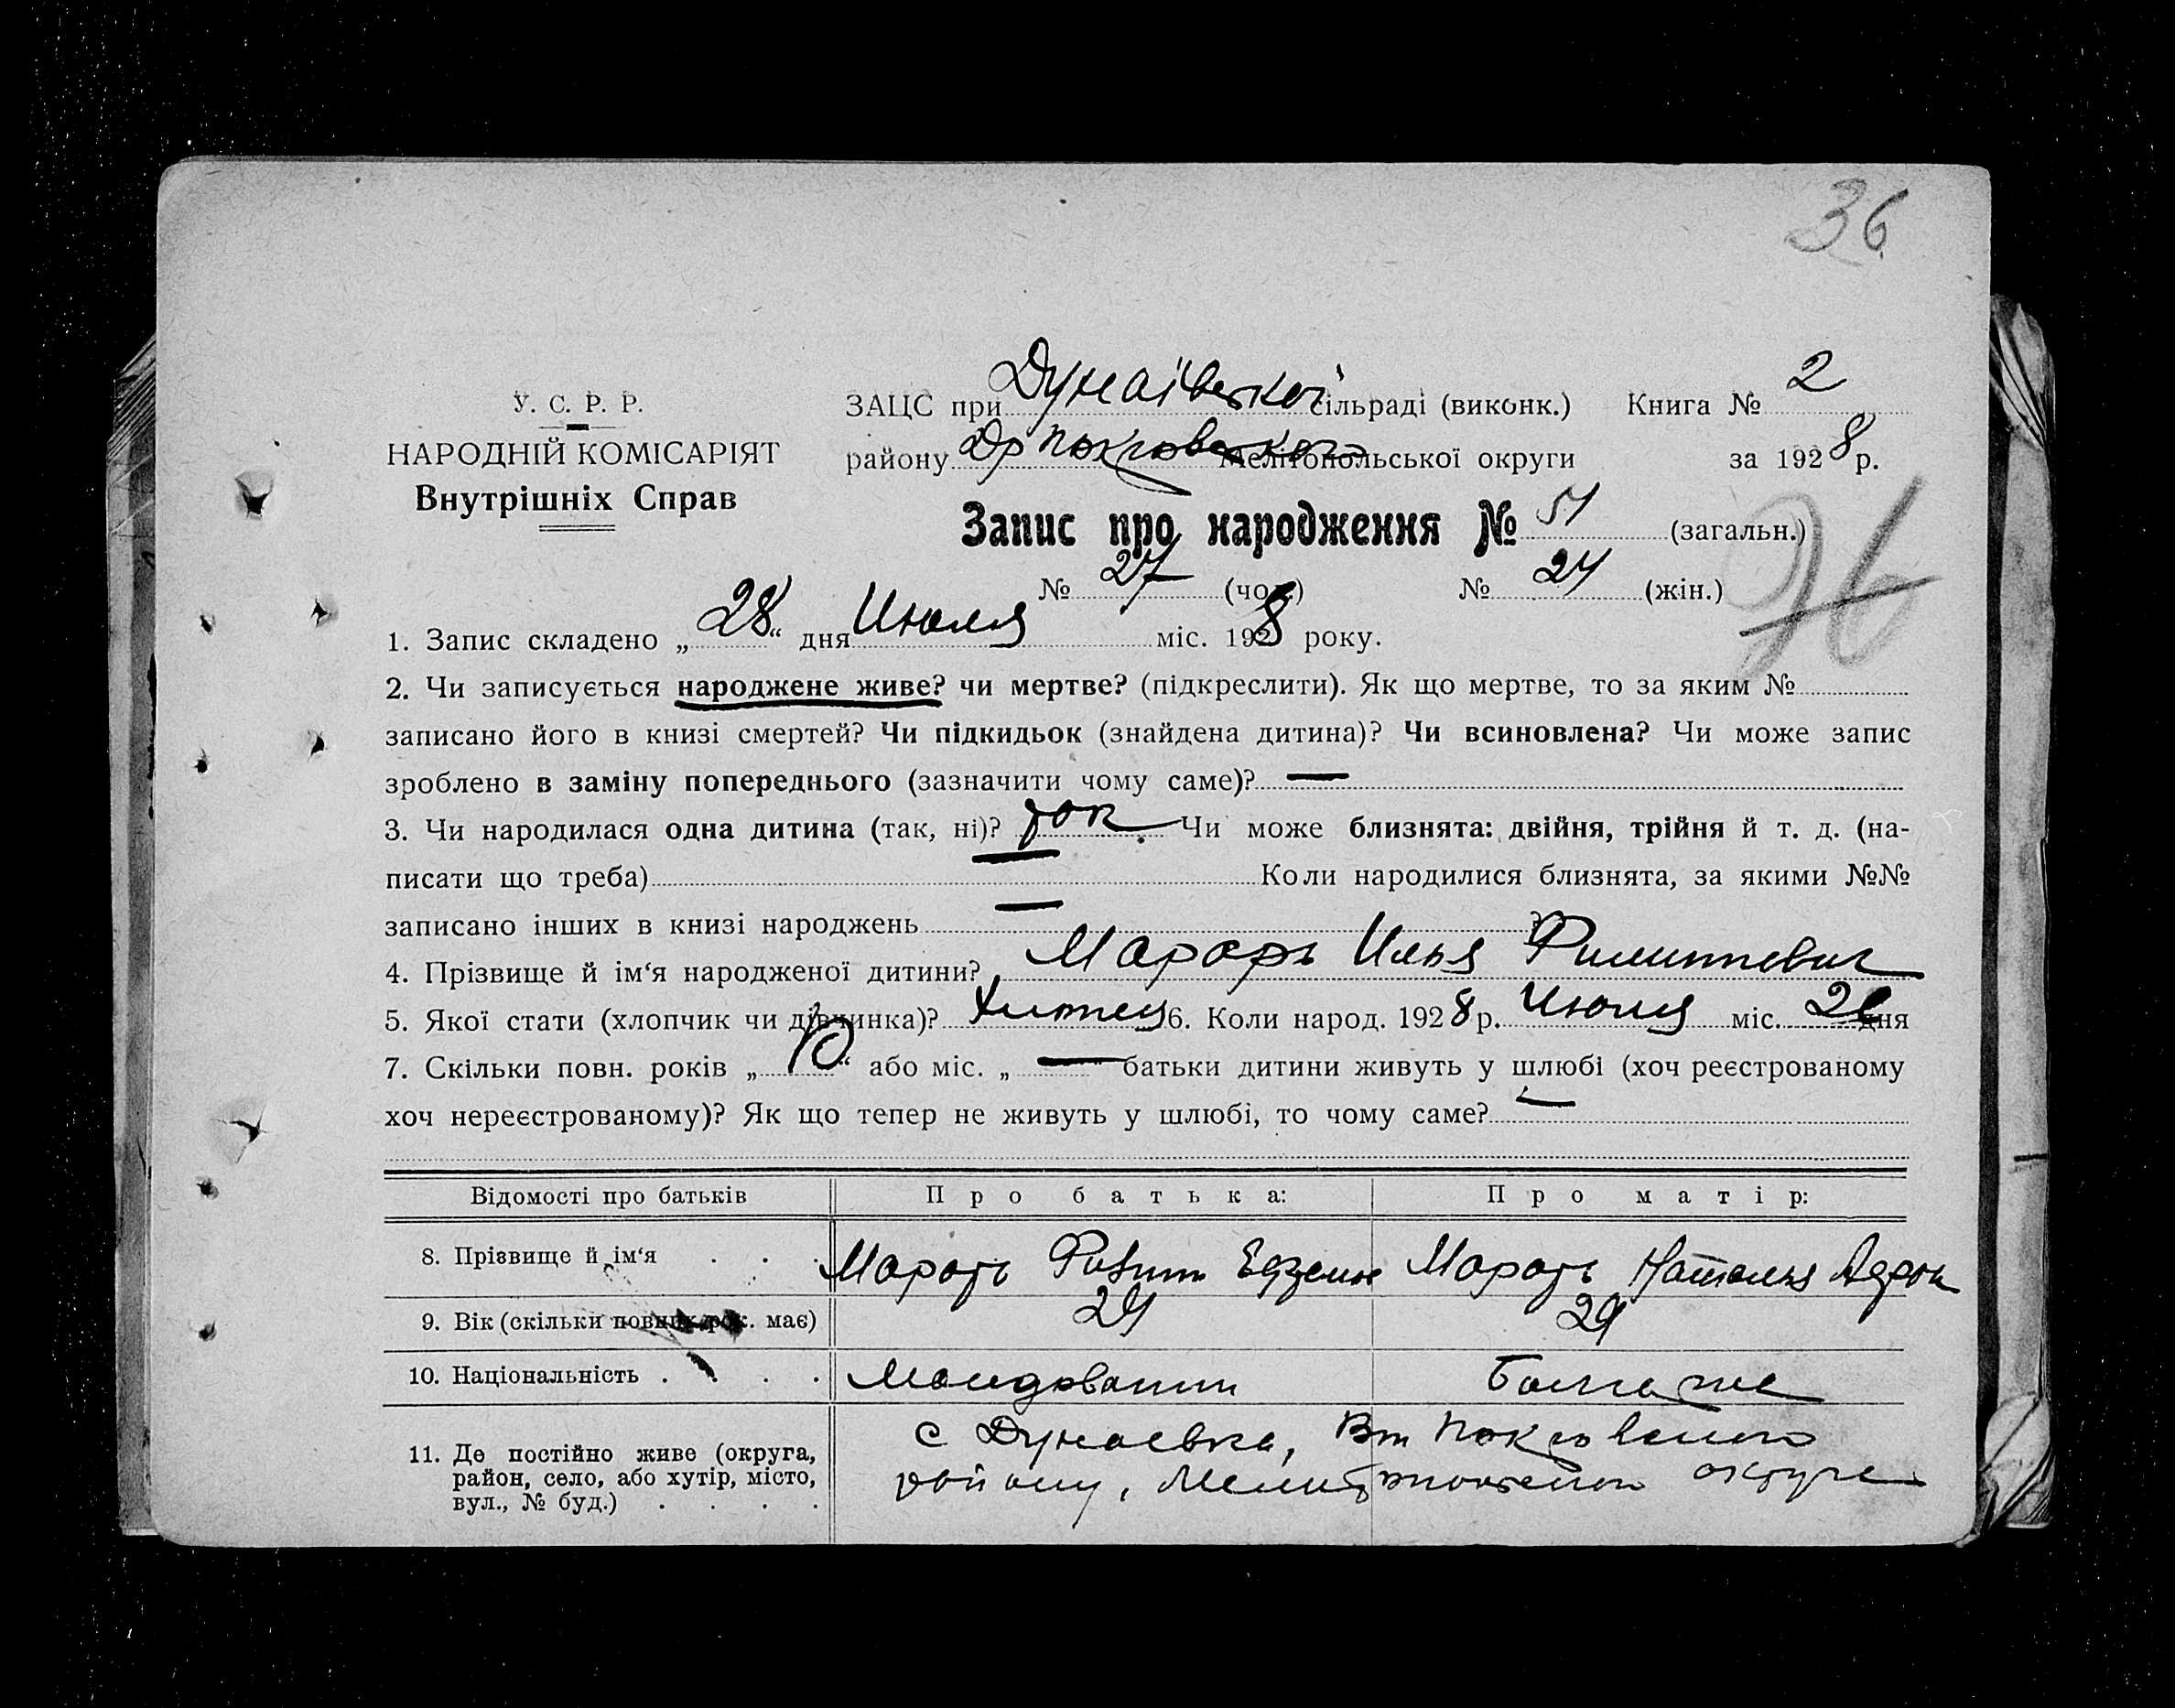 36
У. С. Р. Р.
НАРОДНІЙ КОМІСАРІЯТ
Внутрішніх Справ
ЗАЦС при Дунаівскої сільраді (виконк.) Книга № 2
району Мелітопольської округи за 1928 р.
Запис про народження № 51 (загальн.)
№ 27 (чол.) № 24 (жін.)
1. Запис складено „28“ дня Июля міс. 1928 року.
2. Чи записується народжене живе? чи мертве? (підкреслити). Як що мертве, то за яким №
записано його в книзі смертей? Чи підкидьок (знайдена дитина)? Чи всиновлена? Чи може запис
зроблено в заміну попереднього (зазначити чому саме)? —
3. Чи народилася одна дитина (так, ні)? Чи може близнята: двійня, трійня й т. д. (на-
писати що треба) — Коли народилися близнята, за якими №№
записано інших в книзі народжень — ?
4. Прізвище й ім‘я народженої дитини? Илья Филиппович
5. Якої стати (хлопчик чи дівчинка)? 6. Коли народ. 1928 р. Июля міс. дня
7. Скільки повн. років „10“ або міс. „—“ батьки дитини живуть у шлюбі (хоч реєстрованому
хоч нереєстрованому)? Як що тепер не живуть у шлюбі, то чому саме? —
Відомості про батьків Про батька: Про матір:
8. Прізвище й ім‘я . . . Наталья
9. Вік (скільки повних рок. має) 29 29
10. Національність . . . .
11. Де постійно живе (округа,
район, село, або хутір, місто,
вул., № буд.) . . . .
с Дунаевка,
району, округи